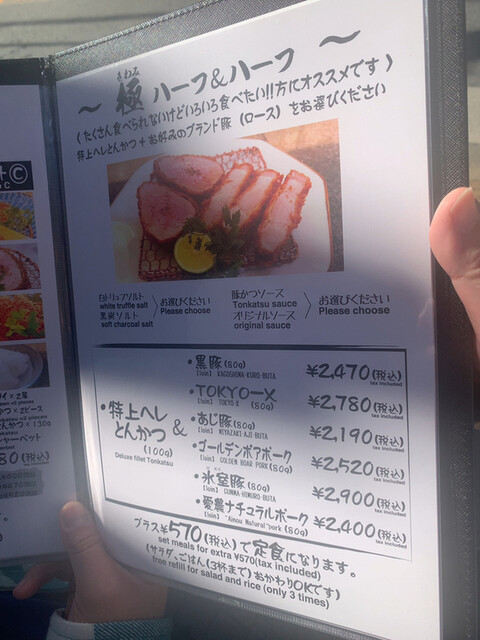 きわみ
～ 極 ハーフ&ハーフ ～
(たくさん食べられないけどいろいろ食べたい!!方にオススメです)
特上ヘレとんかつ + お好みのブランド豚 (ロース) をお選びください
白トリュフソルト
white truffle salt
黒炭ソルト
soft charcoal salt
お選びください
Please choose
豚かつソース
Tonkatsu sauce
オリジナルソース
original sauce
お選びください
Please choose
・特上ヘレとんかつ &
(100g)
Deluxe fillet Tonkatsu
・黒豚(80g) ¥2,470(税込)
【loin】 KAGOSHIMA-KURO-BUTA tax included
・TOKYO-X (80g) ¥2,780(税込)
【loin】 TOKYO X tax included
・あじ豚(80g) ¥2,190(税込)
【loin】 MIYAZAKI-AJI-BUTA tax included
・ゴールデンボアポーク (80g) ¥2,520(税込)
【loin】 GOLDEN BOAR PORK tax included
・氷室豚(80g) ¥2,900(税込)
【loin】 GUNMA-HIMURO-BUTA tax included
・愛農ナチュラルポーク (80g) ¥2,400(税込)
【loin】 "Ainou Natural"pork tax included
プラス¥570(税込)で定食になります。
set meals for extra ¥570(tax included)
(サラダ、ごはん(3杯まで)おかわりOKです)
free refill for salad and rice (only 3 times)